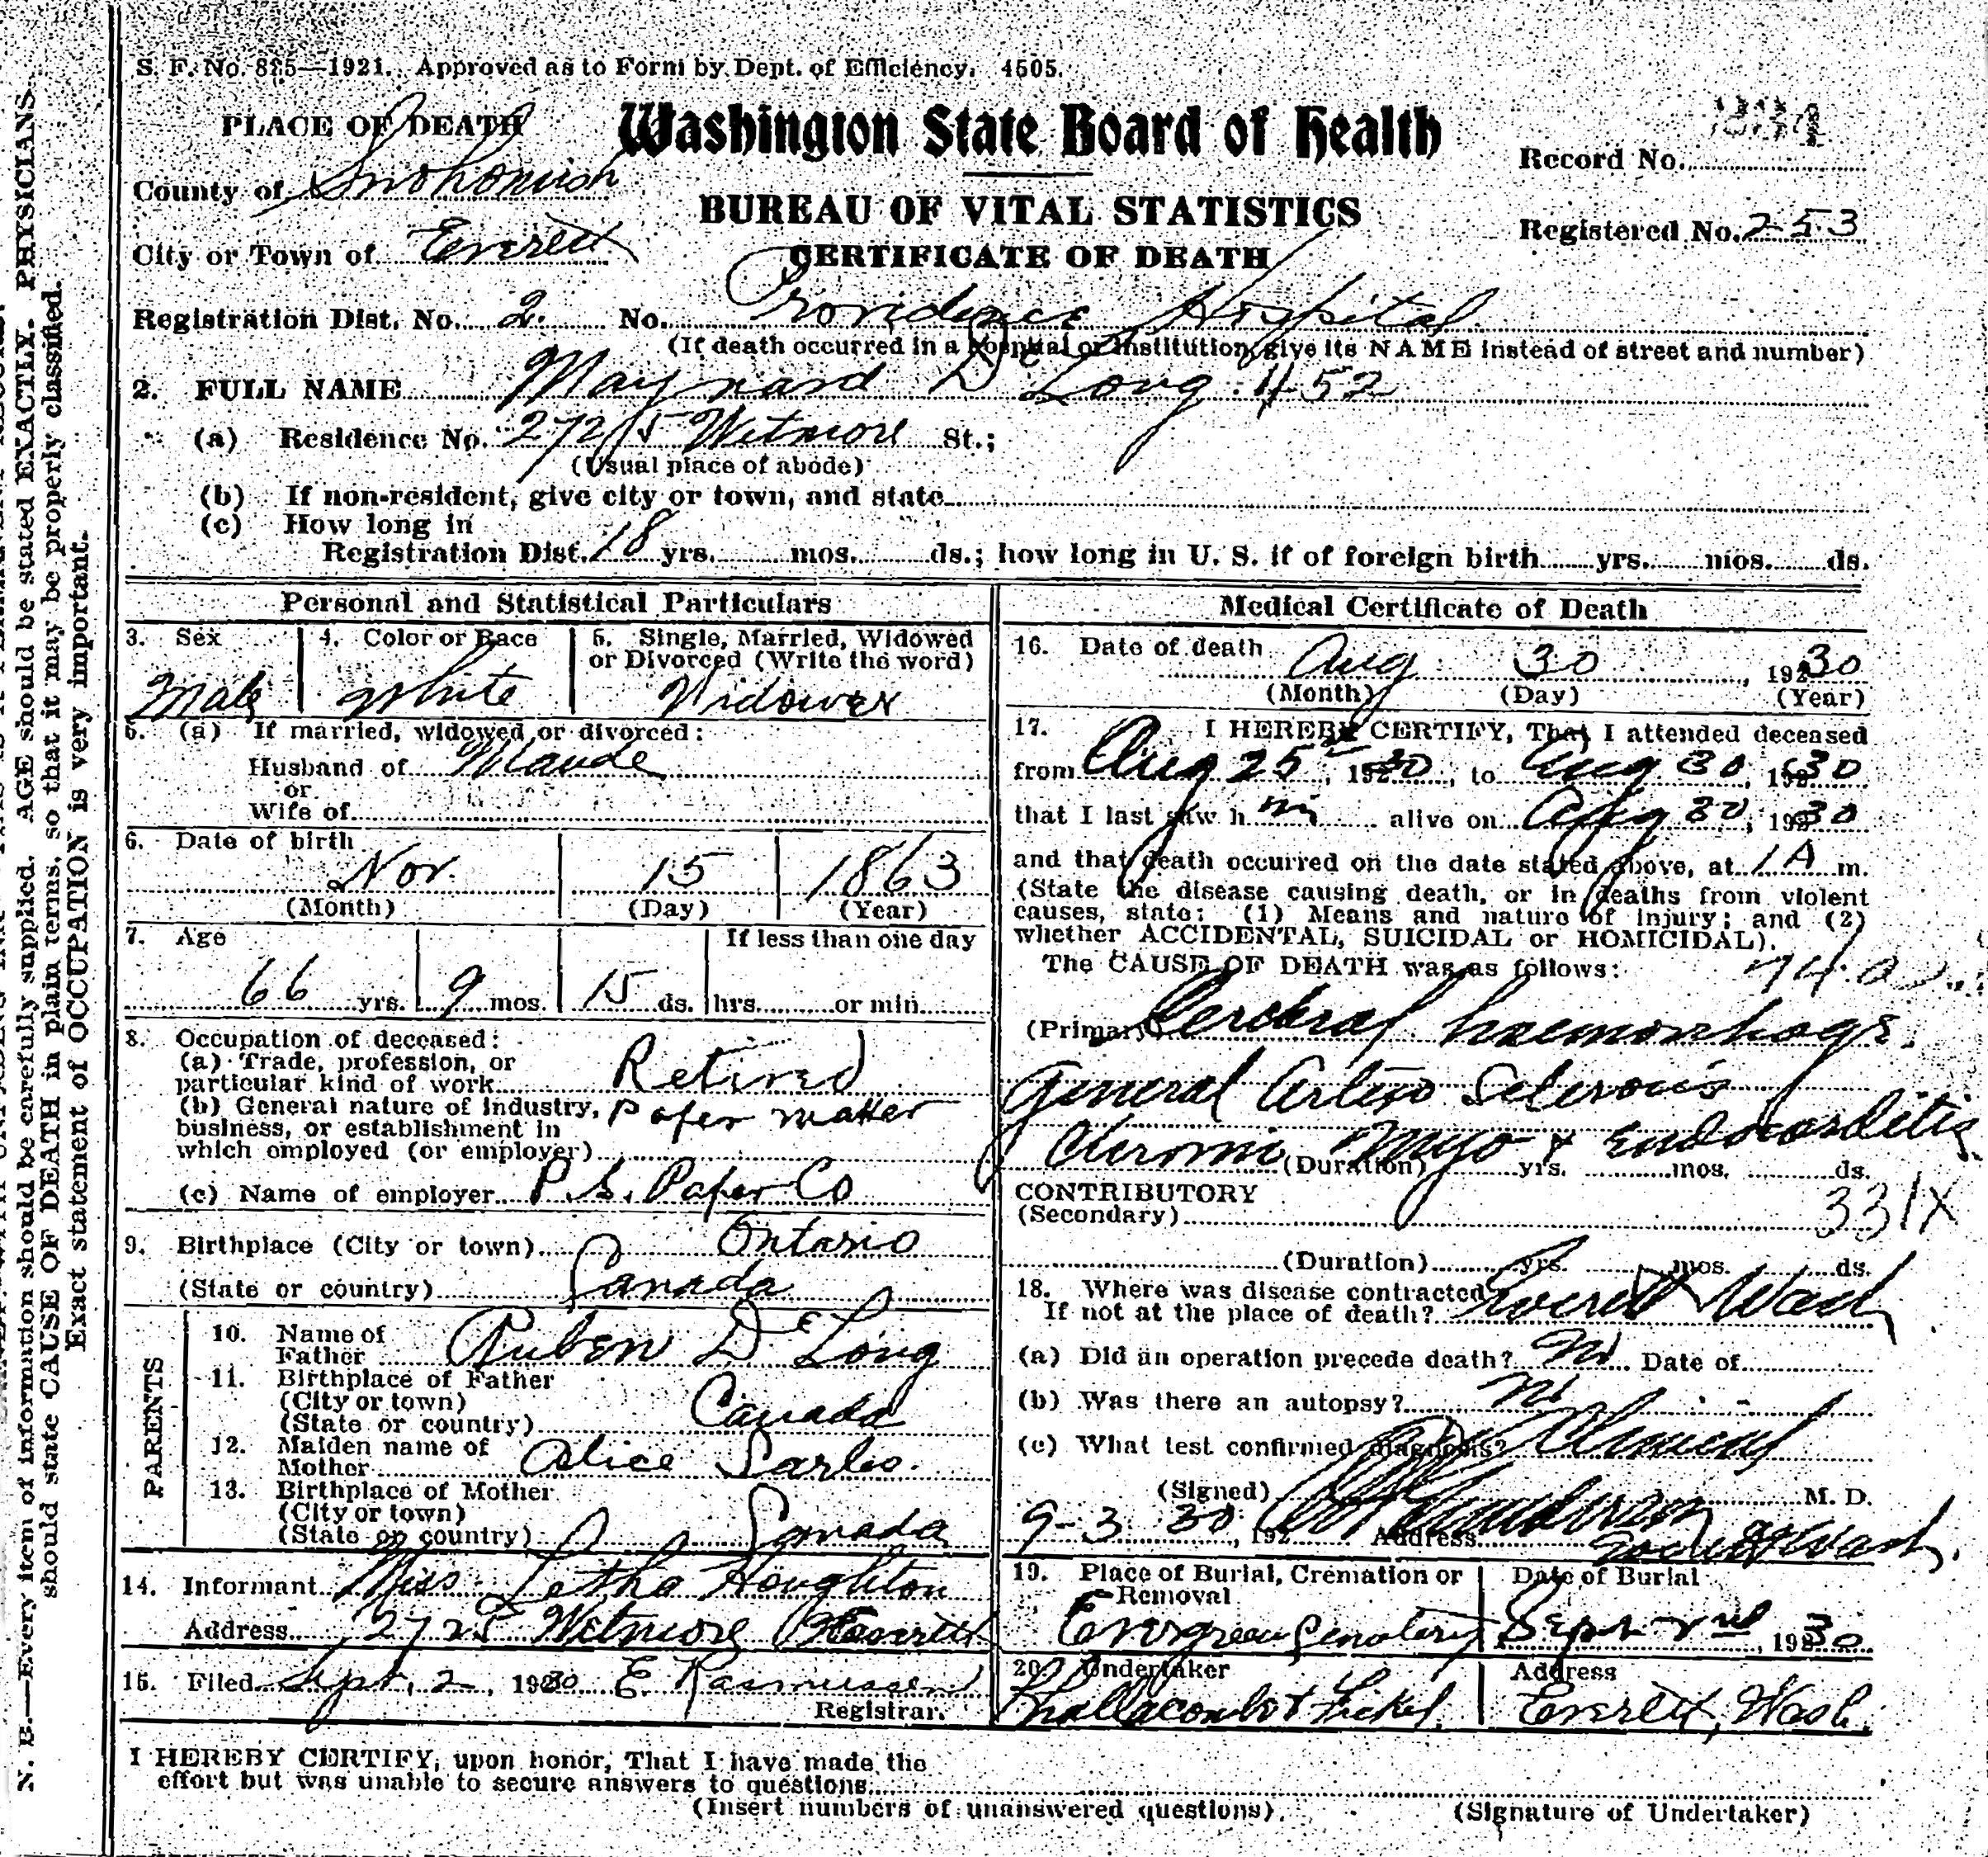 S. F. No. 885—1921. Approved as to Form by Dept. of Efficiency. 4505.
PLACE OF DEATH
Washington State Board of Health
County of Snohomish
Record No.
BUREAU OF VITAL STATISTICS
Registered No. 253
City or Town of Everett
CERTIFICATE OF DEATH
Registration Dist. No. 2. No. Providence Hospital
(If death occurred in a hospital or institution, give its NAME instead of street and number)
2. FULL NAME Maynard De Long 452
(a) Residence No. 2725 Wetmore St.;
(Usual place of abode)
(b) If non-resident, give city or town, and state
(c) How long in
Registration Dist. 18 yrs. mos. ds.; how long in U. S. if of foreign birth yrs. mos. ds.
Personal and Statistical Particulars
3. Sex 4. Color or Race 5. Single, Married, Widowed
or Divorced (Write the word)
Male White Widower
5. (a) If married, widowed or divorced:
Husband of Maude
or
Wife of
6. Date of birth
Nov. 15 1863
(Month) (Day) (Year)
7. Age If less than one day
66 yrs. 9 mos. 15 ds. hrs. or min.
8. Occupation of deceased:
(a) Trade, profession, or
particular kind of work Retired
(b) General nature of industry, Paper maker
business, or establishment in
which employed (or employer)
(c) Name of employer P. S. Paper Co
9. Birthplace (City or town) Ontario
(State or country) Canada
PARENTS
10. Name of
Father Ruben De Long
11. Birthplace of Father
(City or town)
(State or country) Canada
12. Maiden name of
Mother Alice Sarles.
13. Birthplace of Mother
(City or town)
(State or country) Canada
14. Informant Miss Letha Houghton
Address 2725 Wetmore Everett
15. Filed Sept. 2, 1930 E. Rasmussen
Registrar.
Medical Certificate of Death
16. Date of death Aug 30, 1930
(Month) (Day) (Year)
17. I HEREBY CERTIFY, That I attended deceased
from Aug 25, 1930, to Aug 30, 1930
that I last saw him alive on Aug 30, 1930
and that death occurred on the date stated above, at 1 A m.
(State the disease causing death, or in deaths from violent
causes, state: (1) Means and nature of injury; and (2)
whether ACCIDENTAL, SUICIDAL or HOMICIDAL).
The CAUSE OF DEATH was as follows: 74.a
(Primary) Cerebral haemorrhage.
General Arterio Sclerosis
Chronic Myo & Endocarditis
(Duration) yrs. mos. ds.
CONTRIBUTORY
(Secondary) 331X
(Duration) yrs. mos. ds.
18. Where was disease contracted
If not at the place of death? Everett Wash
(a) Did an operation precede death? No Date of
(b) Was there an autopsy? No
(c) What test confirmed diagnosis? Clinical
(Signed) M. D.
9-3 30, 192 Address Everett Wash.
19. Place of Burial, Cremation or Date of Burial
Removal
Evergreen Cemetery Sept 2nd, 1930
20. Undertaker Address
Challacombe & Fickel. Everett, Wash.
I HEREBY CERTIFY, upon honor, That I have made the
effort but was unable to secure answers to questions
(Insert numbers of unanswered questions). (Signature of Undertaker)
N. B.—Every item of information should be carefully supplied. AGE should be stated EXACTLY. PHYSICIANS
should state CAUSE OF DEATH in plain terms, so that it may be properly classified.
Exact statement of OCCUPATION is very important.